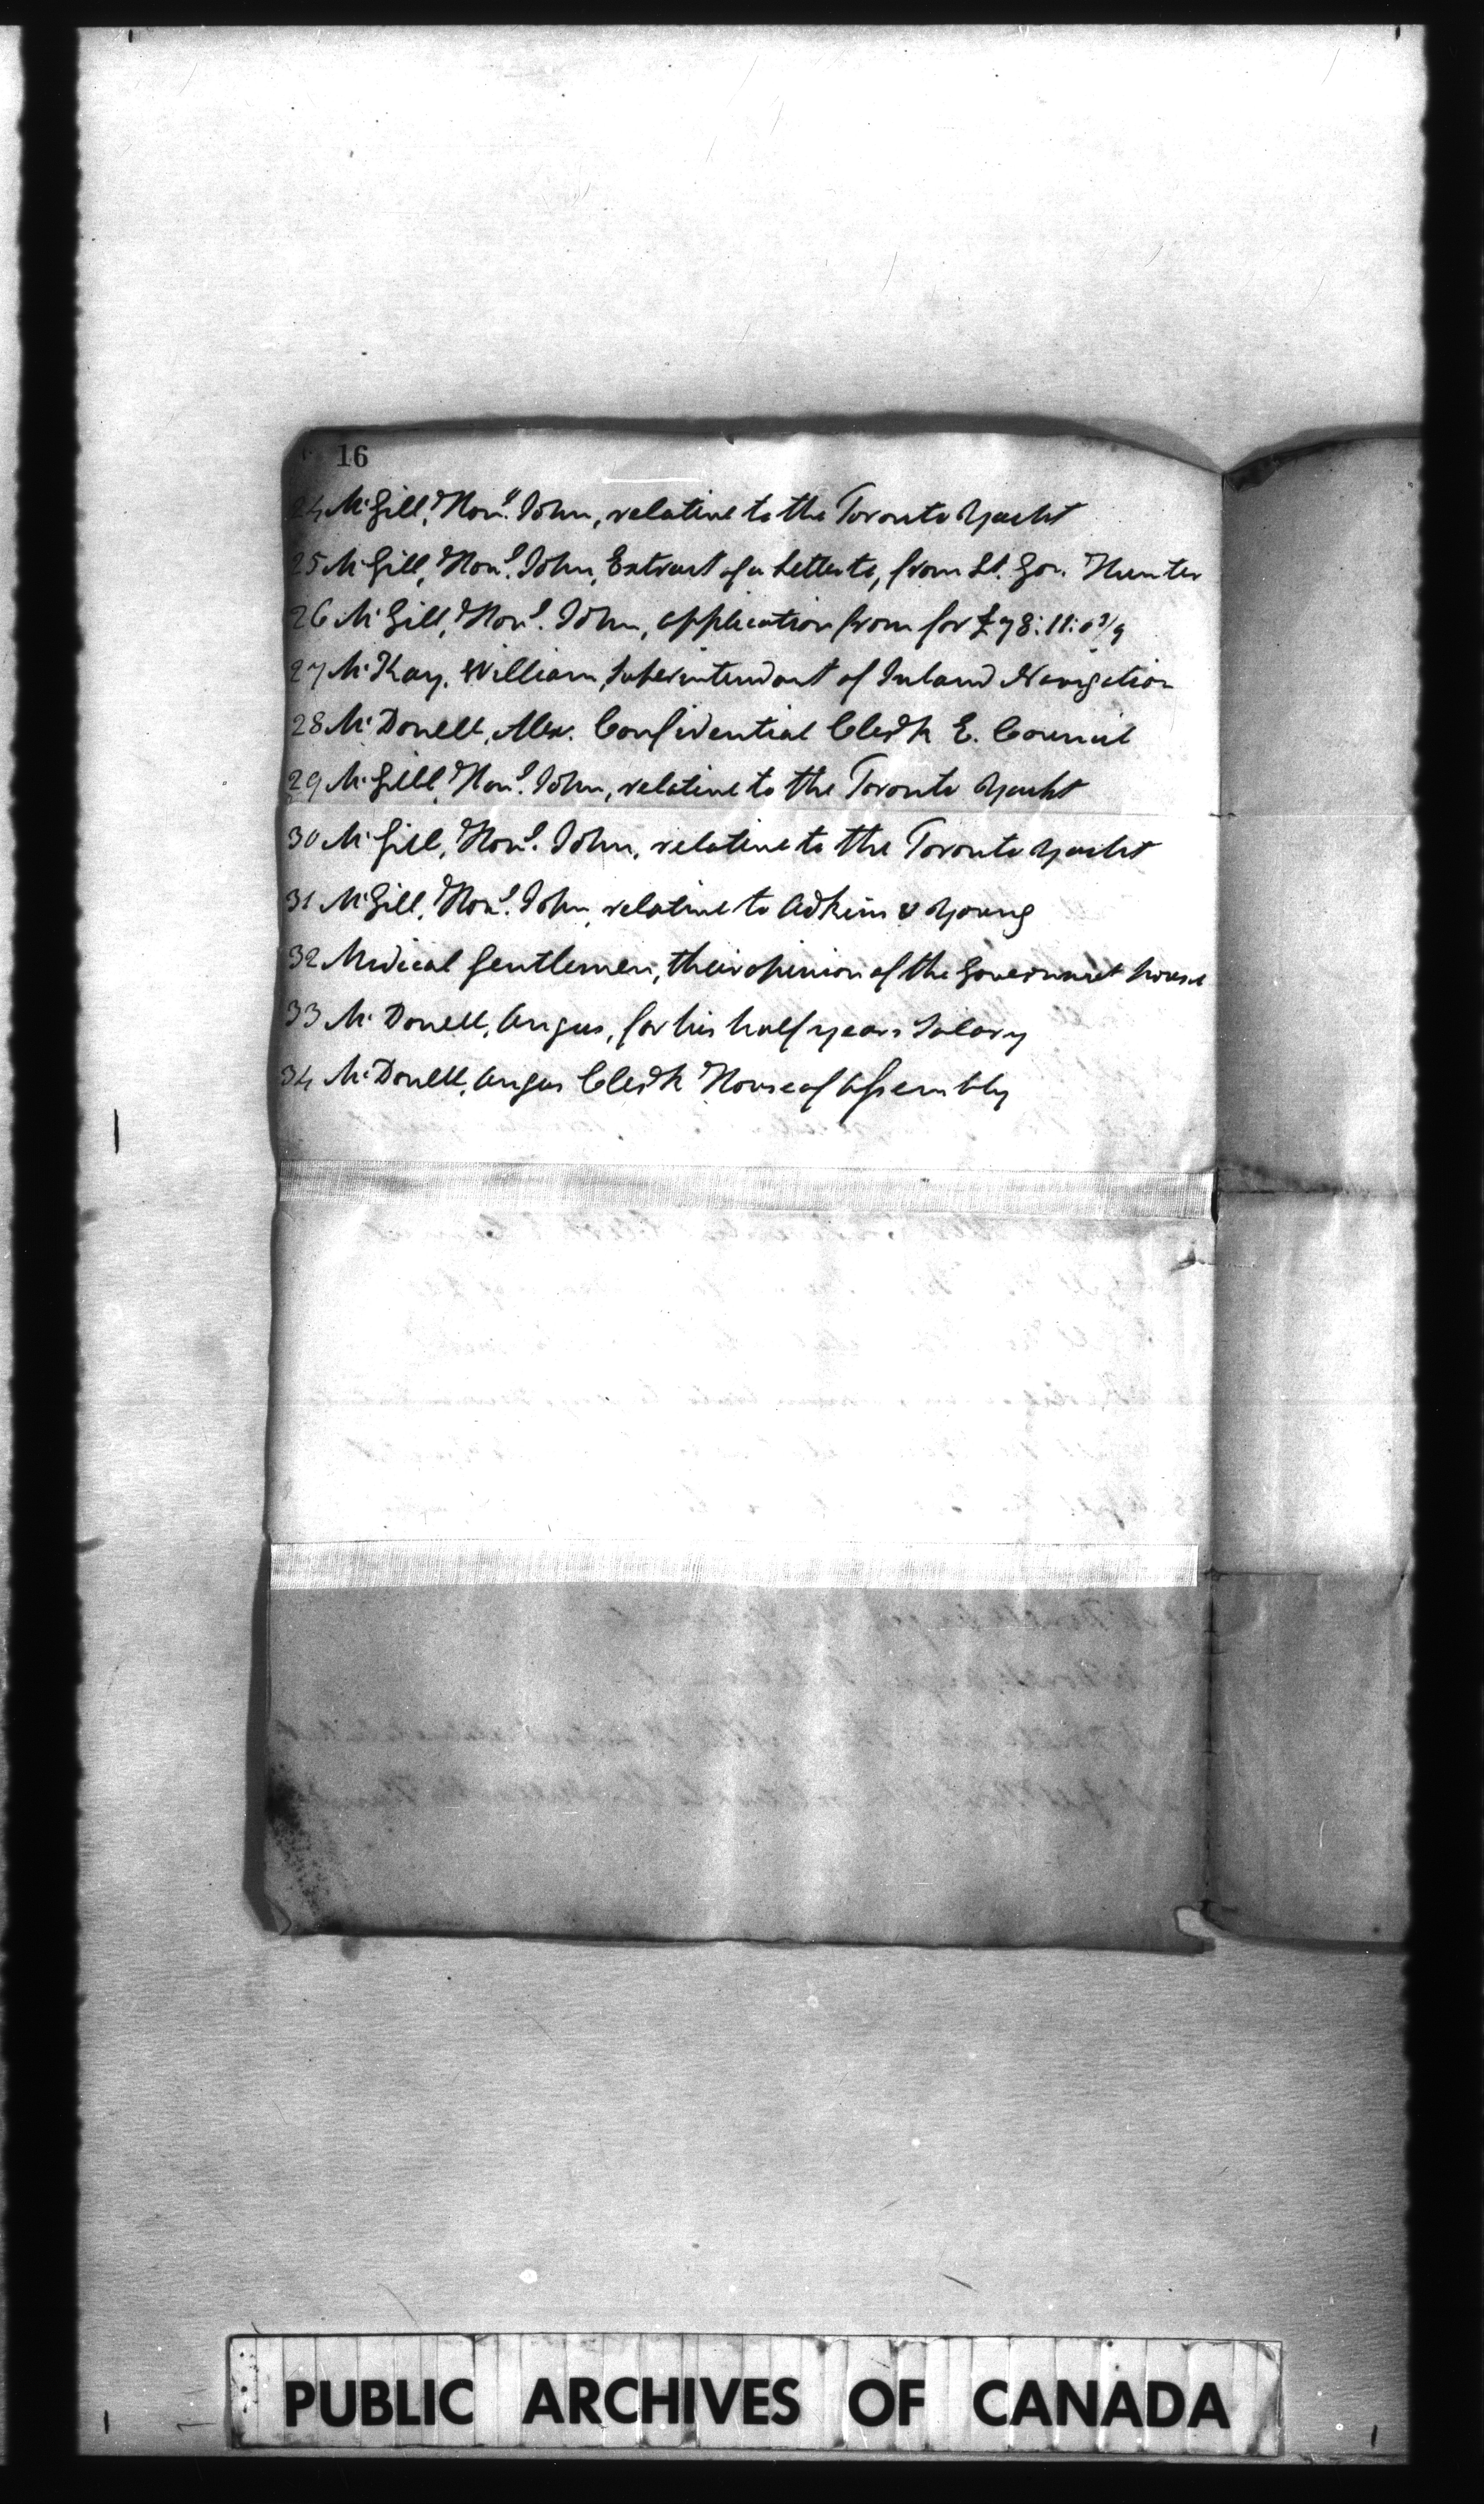 16
24 McGill, Honl. John, relative to the Toronto Yacht
25 McGill, Honl. John, Extract of a Letter to, from Lt. Gov. Hunter
26 McGill, Honl. John, application from for £78:11:
27 McKay, William, Superintendant of Inland Navigation
28 McDonell, Alex. Confidential Clerk E. Council
29 McGill, Honl. John, relative to the Toronto Yacht
30 McGill, Honl. John, relative to the Toronto Yacht
31 McGill, Honl. John, relative to Adkins & Young
32 Medical Gentlemen, their opinion of the Government house
33 McDonell, Angus, for his half years Salary
34 McDonell, Angus Clerk House of Assembly
PUBLIC ARCHIVES OF CANADA